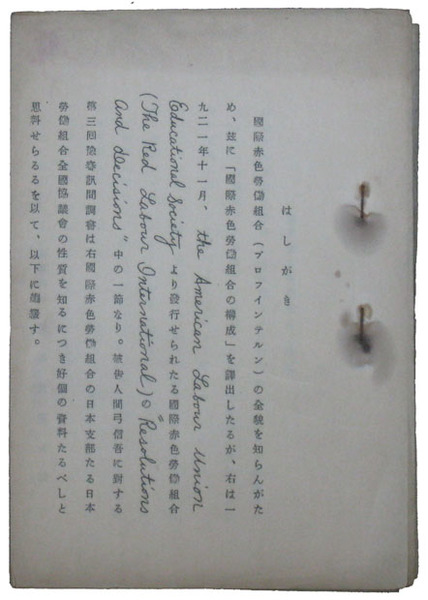 はしがき
國際赤色勞働組合(プロフインテルン)の全貌を知らんがた
め、茲に「國際赤色勞働組合の構成」を譯出したるが、右は一
九三一年十一月、the American Labour Union
Educational Society より發行せられたる國際赤色勞働組合
(The Red Labour International)の "Resolutions
and decisions" 中の一節なり。被告人間弓信吾に對する
第三回豫審訊問調書は右國際赤色勞働組合の日本支部たる日本
勞働組合全國協議會の性質を知るにつき好個の資料たるべしと
思料せらるるを以て、以下に